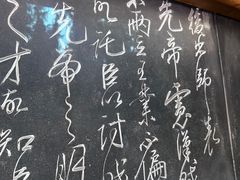 後出師表
先帝慮漢賊
不兩立王業不偏
託臣以討賊
先帝之明
之才故知臣